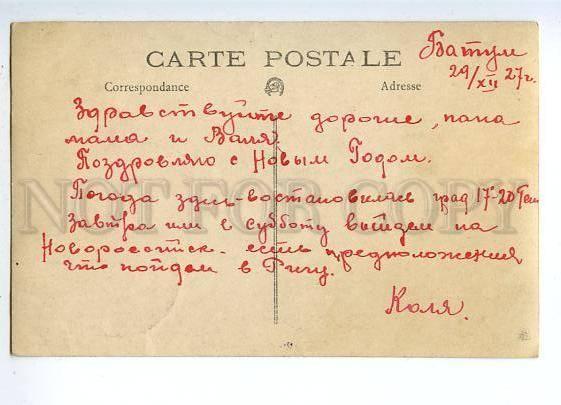 CARTE POSTALE
Correspondance
Adresse
Батум
29/XII 27 г.
Здравствуйте дорогие, папа
мама и Валя.
Поздровляю с Новым Годом.
Погода здесь востановилась град 17°-20 Теп
Завтра или в субботу выйдем на
Новороссийск. есть предположения
что пойдем в Ригу.
Коля.
NOT FOR COPY